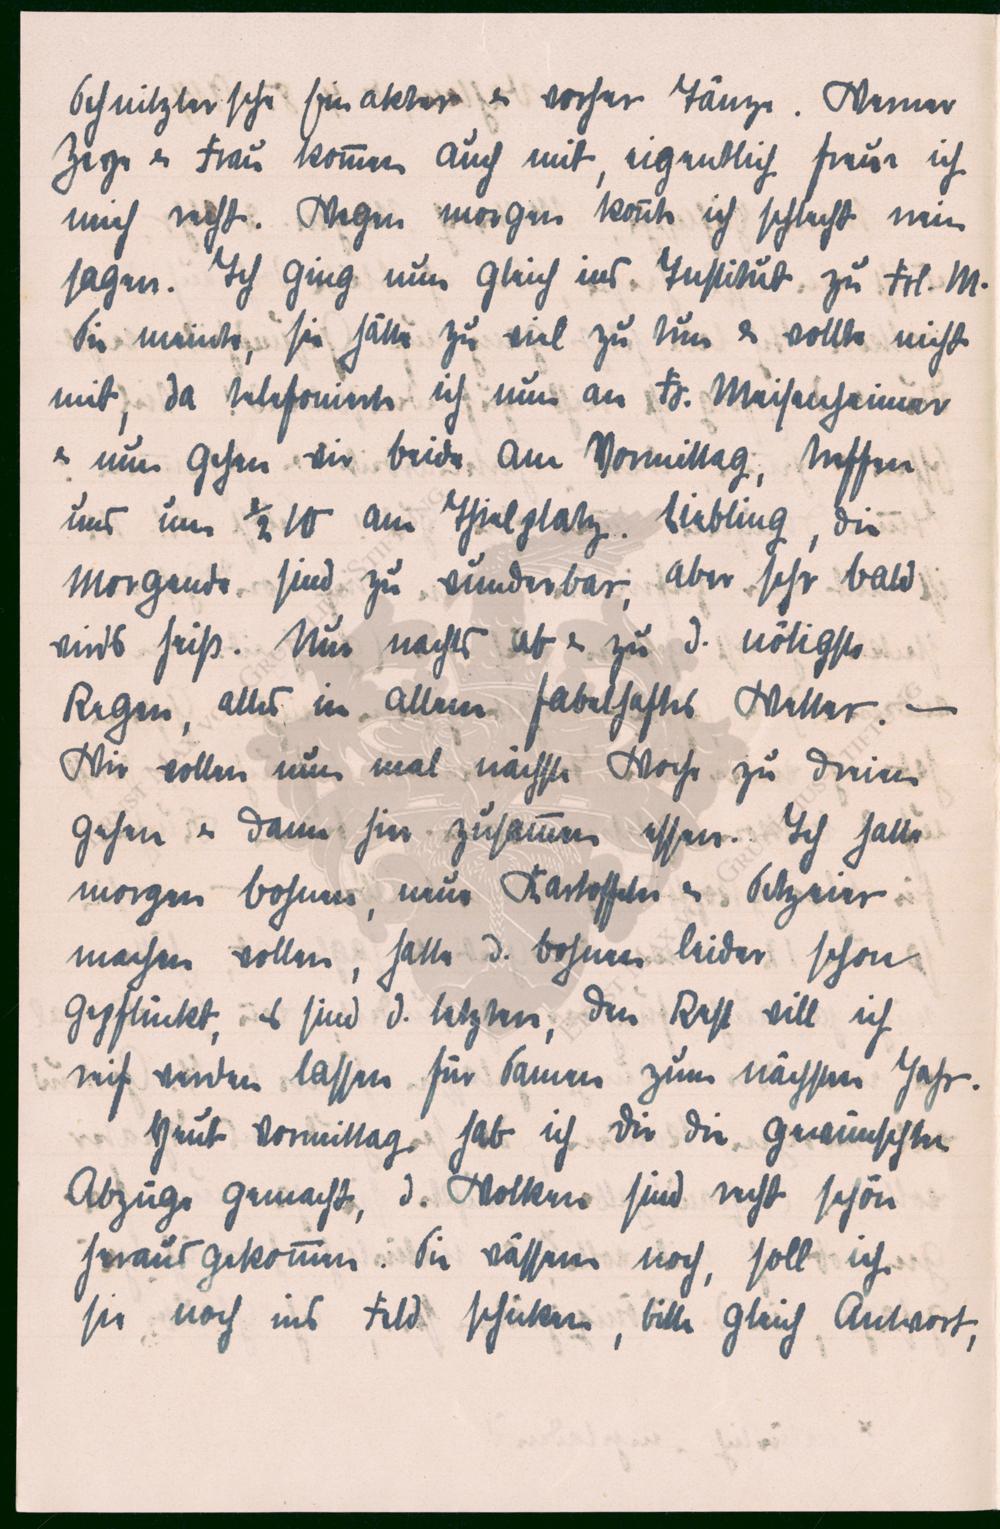 Schnitzlersche Einakter & vorher Tänze. Werner
Zerge & Frau kom̅en auch mit, eigentlich freue ich
mich recht. Wegen morgen kon̅te ich schlecht nein
sagen. Ich ging nun gleich ins Institut zu Frl. M.
Sie meinte, sie hätte zu viel zu tun & wollte nicht
mit, da telefonierte ich nun an Fr. Meisenheimer
& nun gehen wir beide am Vormittag, treffen
uns um ½ 10 am Thielplatz. Liebling, die
Morgende sind zu wunderbar, aber sehr bald
wirds heiß. Nur nachts ab & zu d. nötigste
Regen, alles in allem fabelhaftes Wetter. —
Wir wollen nun mal nächste Woche zu dreien
gehen & dann hier zusam̅en essen. Ich hatte
morgen Bohnen, neue Kartoffeln & Setzeier
machen wollen, hatte d. Bohnen leider schon
gepflückt, es sind d. letzten, den Rest will ich
reif werden lassen für Samen zum nächsten Jahr.
Heut Vormittag hab ich Dir die gewünschten
Abzüge gemacht, d. Wolken sind recht schön
herausgekom̅en. Sie wässern noch, soll ich
sie noch ins Feld schicken, bitte gleich Antwort,